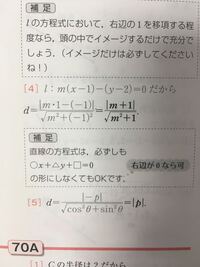 補足
lの方程式において，右辺の1を移項する程
度なら，頭の中でイメージするだけで充分で
しょう．（イメージだけは必ずしてください
ね！）
[4] l：m(x－1)－(y－2)=0 だから
d=|m・1－(－1)|/√(m²＋(－1)²)=|m＋1|/√(m²＋1).
補足
直線の方程式は，必ずしも
○x＋△y＋□=0
の形にしなくてもOKです．
右辺が0なら可
[5] d=|－p|/√(cos²θ＋sin²θ)=|p|.
70A
[1] Cの半径は2だから